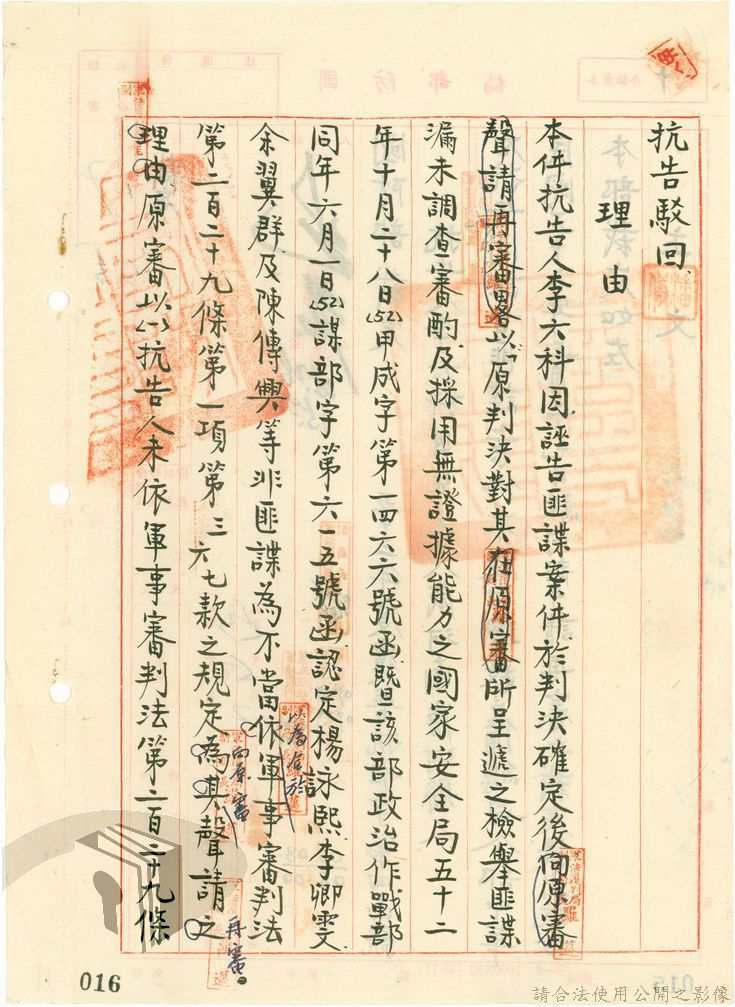 抗告駁回
理由
本件抗告人李六科因誣告匪諜案件於判決確定後向原審
聲請再審略以「原判決對其在原審所呈遞之檢舉匪諜
漏未調查審酌及採用無證據能力之國家安全局五十二
年十月二十八日(52)甲成字第一四六六號函暨該部政治作戰部
同年六月一日(52)謀部字第六一五號函認定楊詠熙李卿雯
余翼群及陳傳興等非匪諜為不當依軍事審判法
以為合於
第二百二十九條第一項第三六七款之規定為其聲請之
向原審
再審
理由原審以(一)抗告人未依軍事審判法第二百二十九條
016
請合法使用公開之影像